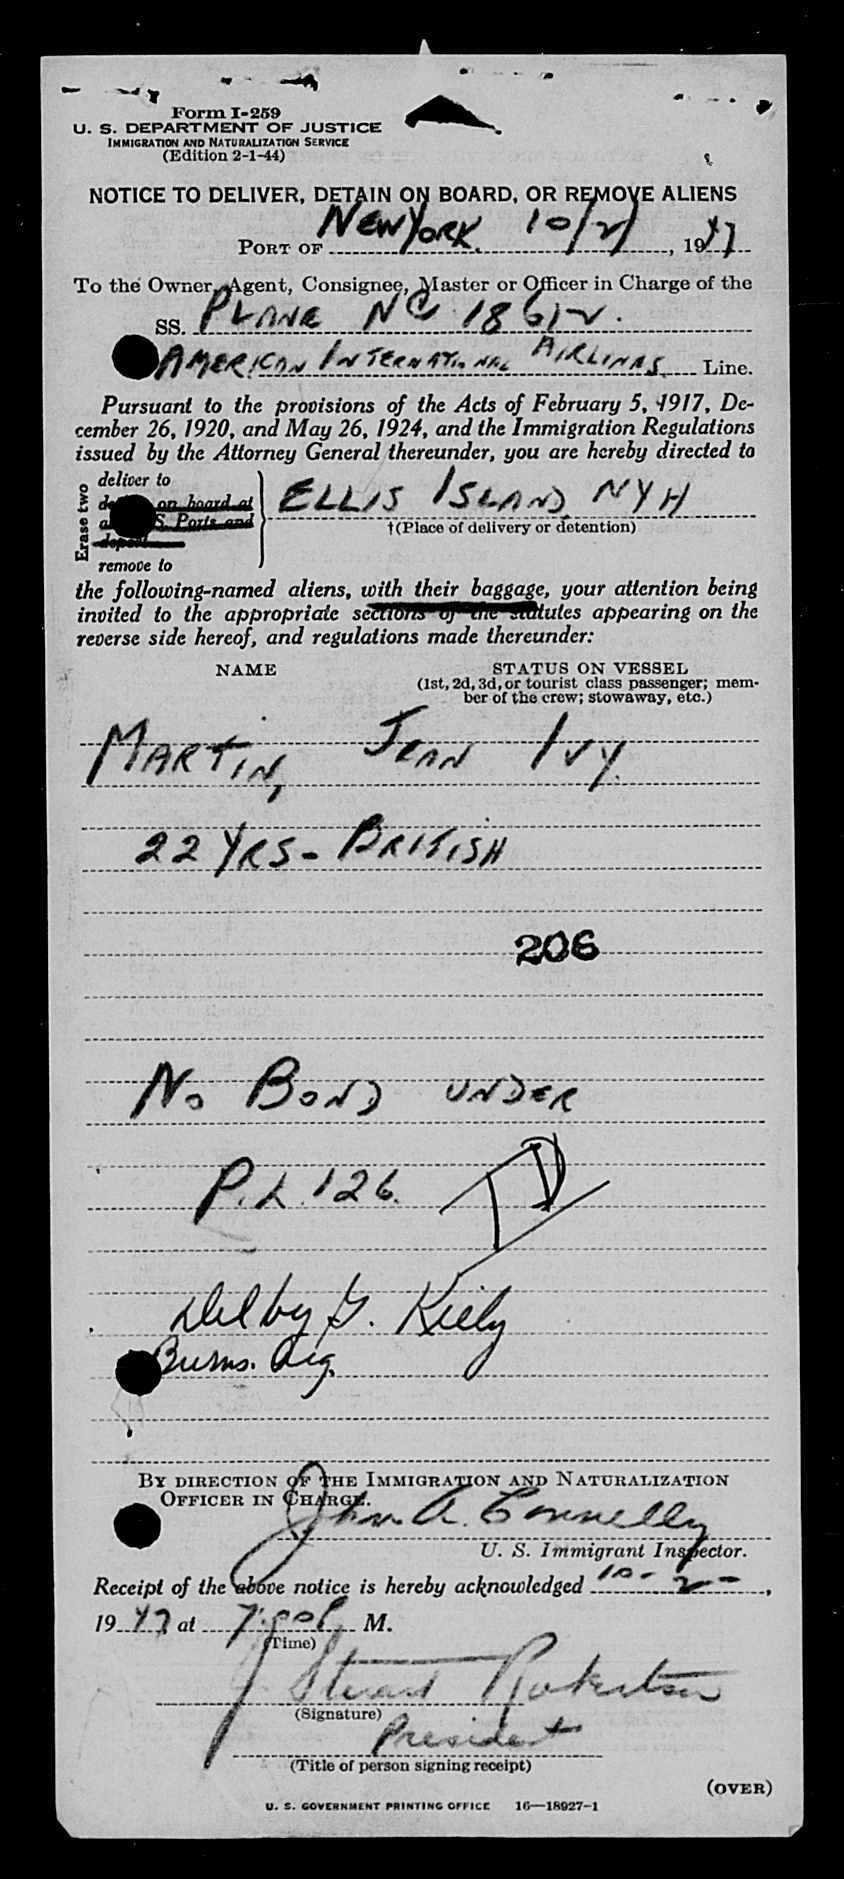 Form I-259
U. S. DEPARTMENT OF JUSTICE
IMMIGRATION AND NATURALIZATION SERVICE
(Edition 2-1-44)
NOTICE TO DELIVER, DETAIN ON BOARD, OR REMOVE ALIENS
PORT OF NEW YORK 10/2/, 1947
To the Owner, Agent, Consignee, Master or Officer in Charge of the
SS. PLANE NC 18612.
AMERICAN INTERNATIONAL AIRLINES Line.
Pursuant to the provisions of the Acts of February 5, 1917, De-
cember 26, 1920, and May 26, 1924, and the Immigration Regulations
issued by the Attorney General thereunder, you are hereby directed to
Erase two
deliver to
on board at
S. Ports and
remove to
ELLIS ISLAND, NYH
†(Place of delivery or detention)
the following-named aliens, with their baggage, your attention being
invited to the appropriate sections of the statutes appearing on the
reverse side hereof, and regulations made thereunder:
NAME
STATUS ON VESSEL
(1st, 2d, 3d, or tourist class passenger; mem-
ber of the crew; stowaway, etc.)
MARTIN, JEAN IVY.
22 YRS - BRITISH
206
NO BOND UNDER
P.L. 126.
G. Kiely
Burns. Aig.
BY DIRECTION OF THE IMMIGRATION AND NATURALIZATION
OFFICER IN CHARGE.
John A. Connelly
U. S. Immigrant Inspector.
Receipt of the above notice is hereby acknowledged 10-2-,
1947 at M.
(Time)
Stuart Robertson
(Signature)
President
(Title of person signing receipt)
(OVER)
U. S. GOVERNMENT PRINTING OFFICE 16—18927-1